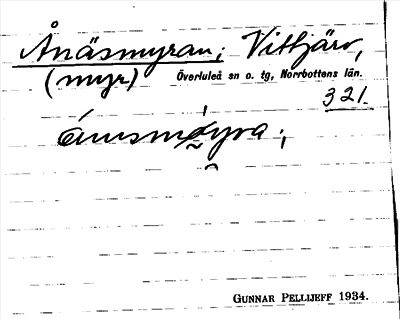 Ånäsmyran; Vittjärv,
(myr) Överluleå sn o. tg, Norrbottens län.
321.
GUNNAR PELLIJEFF 1934.